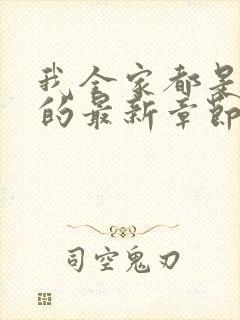 我全家都是
的最新章节
司空鬼刃